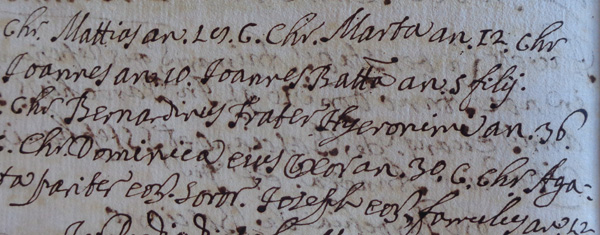 Chr. Mattias an. 20. C. Chr. Marta an. 12. Chr
Joannes an. 10. Joannes Batta an. 5 filij.
Chr. Bernardinus Frater Hyeronimi an. 36.
C. Chr. Dominica eius Uxor an. 30. C. Chr. Aga-
ta pariter eor. Soror. Joseph eor. famulus an. 12